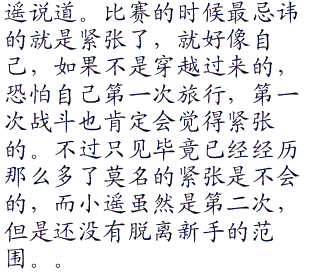 遥说道。比赛的时候最忌讳
的就是紧张了，就好像自
己，如果不是穿越过来的，
恐怕自己第一次旅行，第一
次战斗也肯定会觉得紧张
的。不过只见毕竟已经经历
那么多了莫名的紧张是不会
的，而小遥虽然是第二次，
但是还没有脱离新手的范
围。。